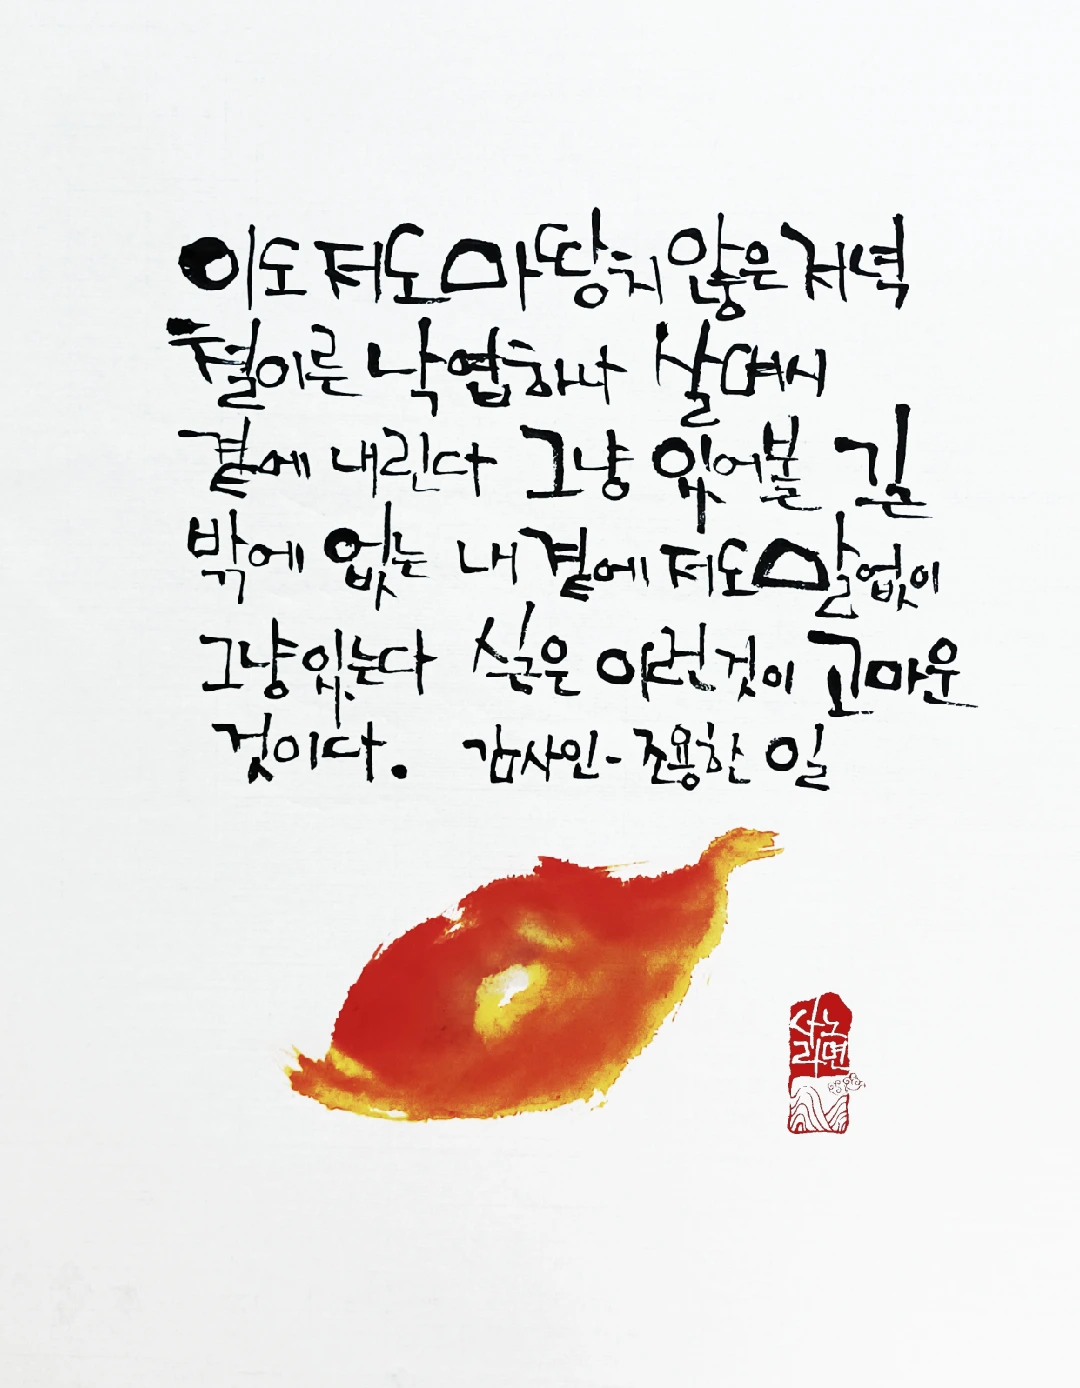 이도 저도 마땅치 않은 저녁
철이른 낙엽하나 살며시
곁에 내린다 그냥 있어볼 길
밖에 없는 내 곁에 저도 말없이
그냥있는다 실은 이런것이 고마운
것이다. 김사인-조용한 일
사노
라면